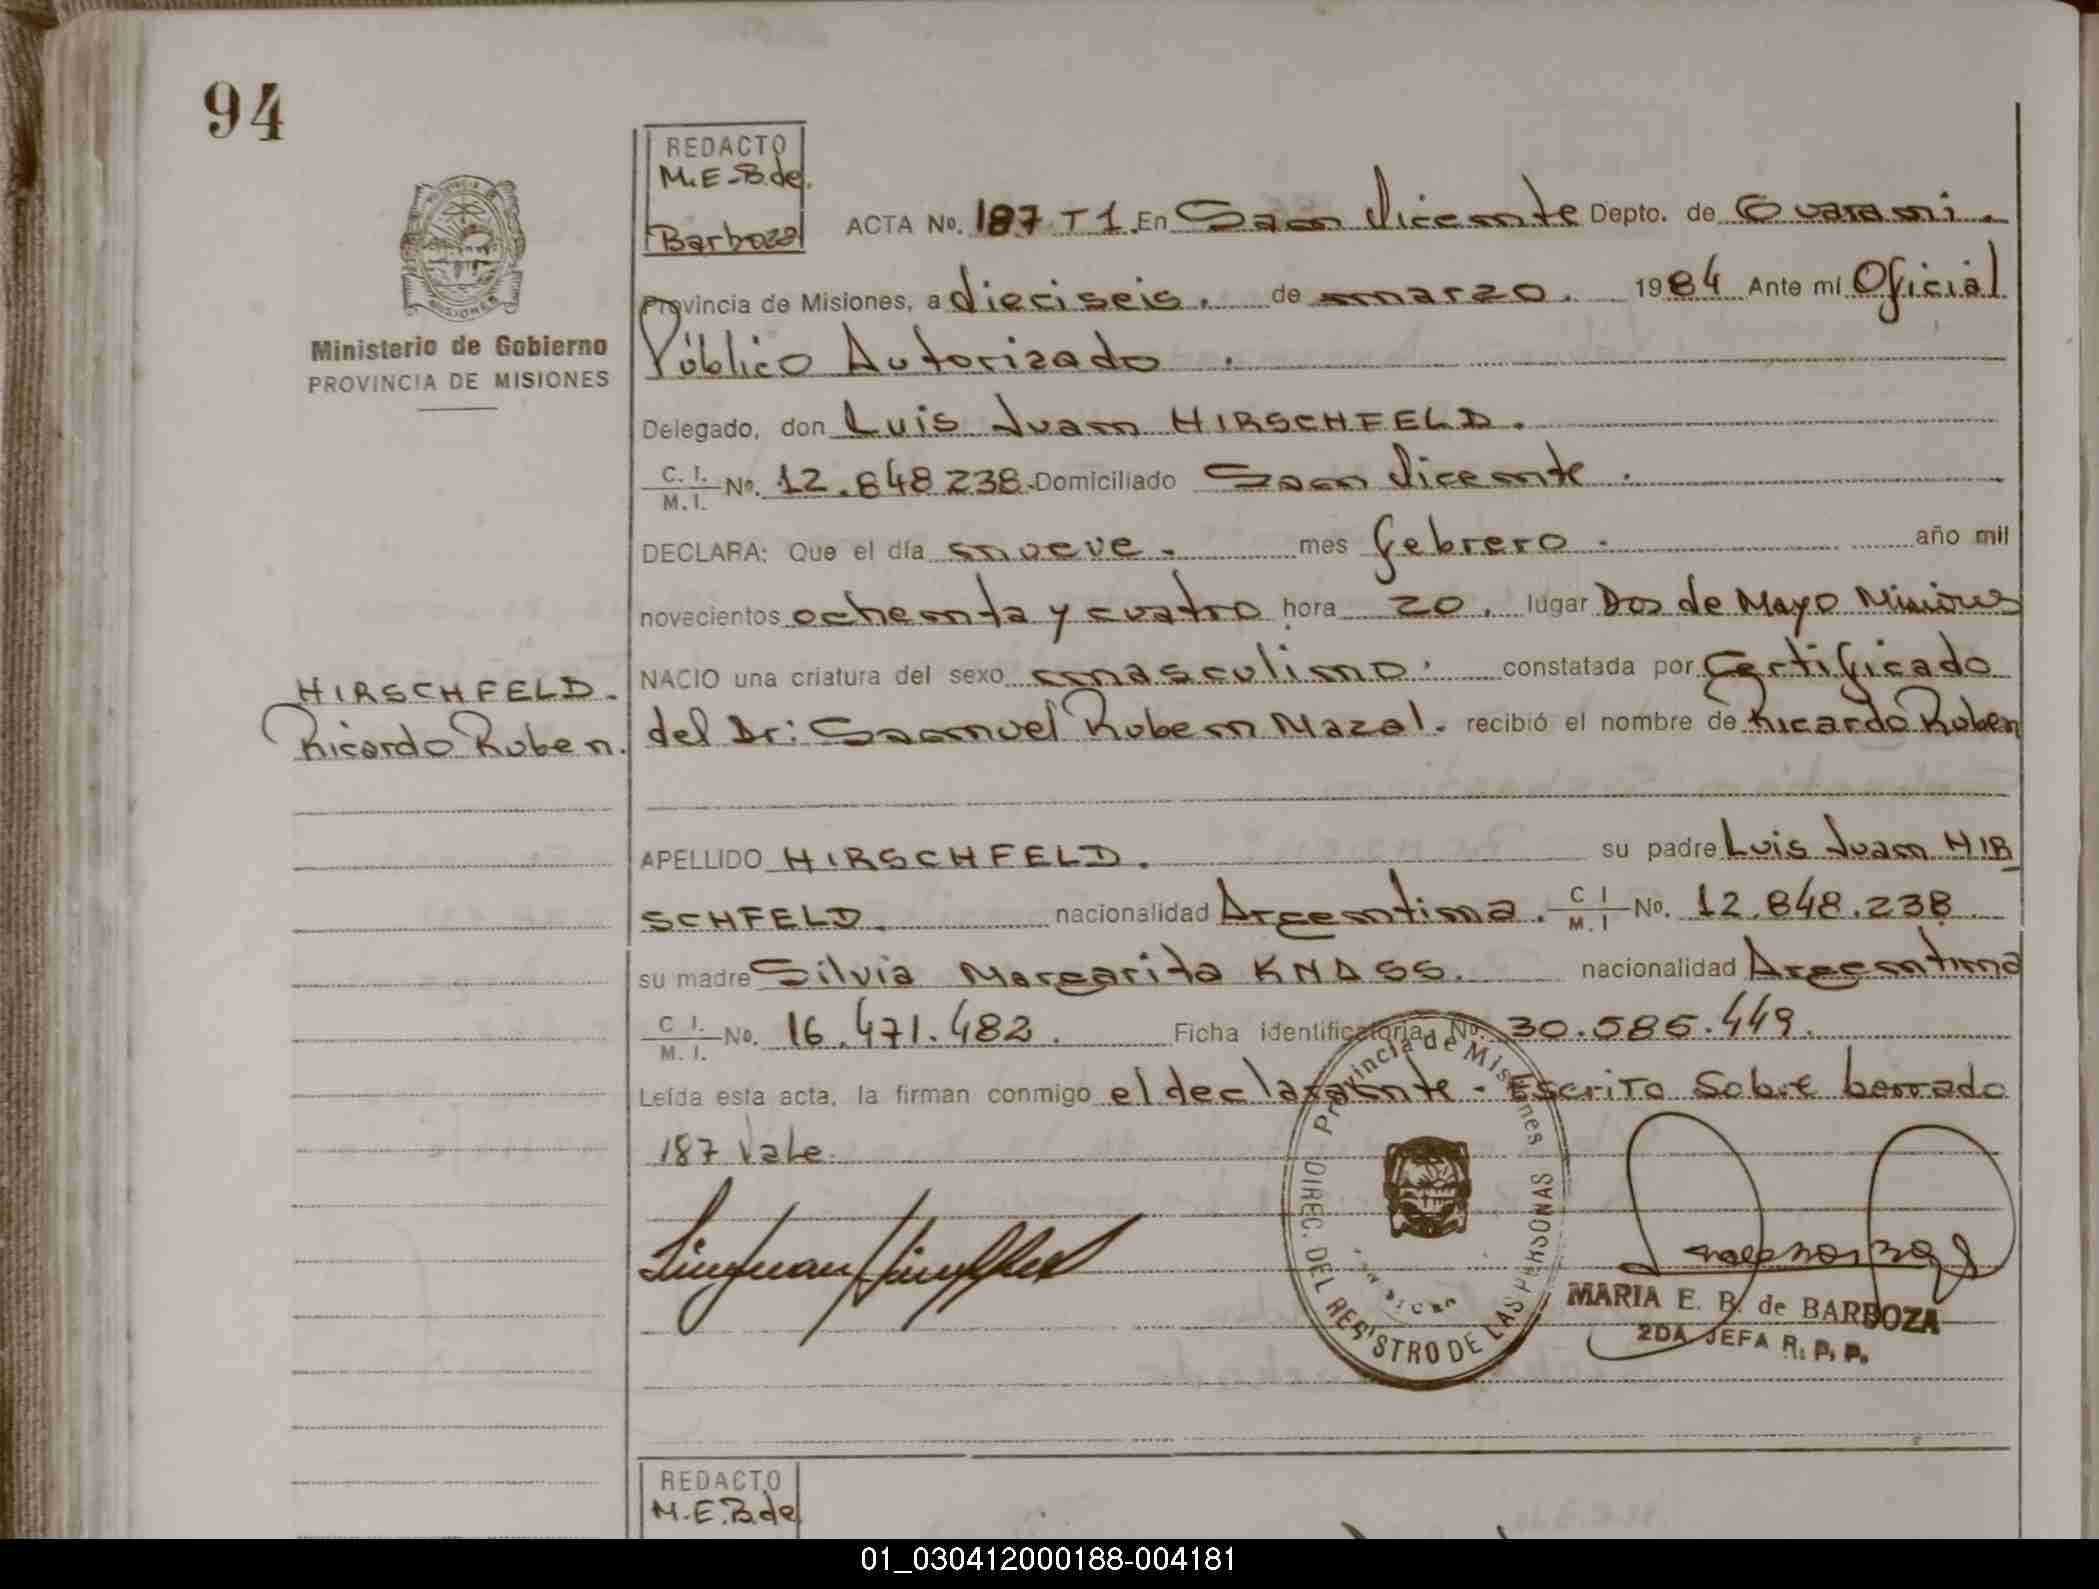 94
REDACTO
M.E-B.de.
Barboza
ACTA No. 187 T 1. En San Vicente Depto. de Guarani.
Provincia de Misiones, a dieciseis. de marzo. 1984 Ante mí Oficial
Público Autorizado.
Ministerio de Gobierno
PROVINCIA DE MISIONES
Delegado, don Luis Juan HIRSCHFELD.
C. I. / M. I. No. 12.848 238. Domiciliado San Vicente.
DECLARA: Que el día nueve. mes febrero. año mil
novecientos ochenta y cuatro hora 20. lugar Dos de Mayo Misiones
NACIO una criatura del sexo masculino. constatada por Certificado
HIRSCHFELD.
Ricardo Ruben.
del Dr: Samuel Ruben Mazal. recibió el nombre de Ricardo Ruben
APELLIDO HIRSCHFELD. su padre Luis Juan HIR
SCHFELD. nacionalidad Argentina. C I / M. I No. 12.848.238
su madre Silvia Margarita KNASS. nacionalidad Argentina
C I. / M. I. No. 16.471.482. Ficha identificatoria No. 30.585.449.
Leída esta acta, la firman conmigo el declarante - Escrito Sobre borrado
187 Vale.
Provincia de Misiones
DIREC. DEL REGISTRO DE LAS PERSONAS
MARIA E. B. de BARBOZA
2DA JEFA R. P. P.
REDACTO
M.E.B.de
01_030412000188-004181